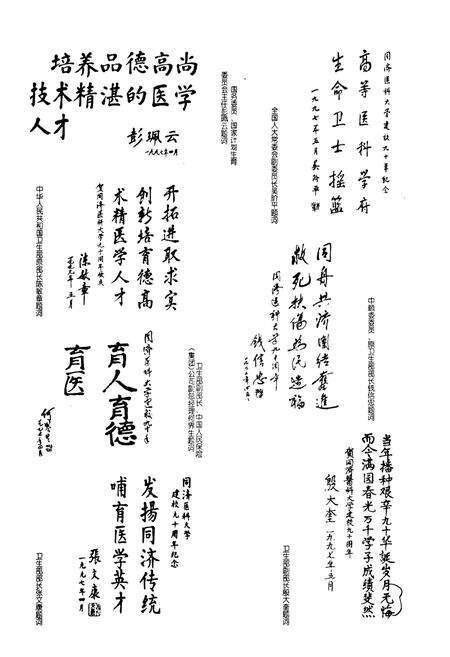 培养品德高尚
技术精湛的医学
人才
彭珮云
一九九七年四月
国务委员、国家计划生育
委员会主任彭珮云题词
同济医科大学建校九十周年纪念
高等医科学府
生命卫士摇篮
一九九七年五月吴阶平
全国人大常委会副委员长吴阶平题词
开拓进取求实
创新培育德高
术精医学人才
贺同济医科大学九十周年校庆
陈敏章
五月
中华人民共和国卫生部原部长陈敏章题词
同舟共济团结奋进
救死扶伤为民造福
同济医科大学九十周年
钱信忠
中顾委委员、原卫生部部长钱信忠题词
同济医科大学建校九十年
育人育德
育医
卫生部副部长、中国人民保险
(集团)公司副总经理何界生题词
当年播种艰辛九十华诞岁月无悔
而今满园春光万千学子成绩斐然
贺同济医科大学建校九十周年
殷大奎 一九九七年五月
卫生部副部长殷大奎题词
同济医科大学
建校九十周年纪念
发扬同济传统
哺育医学英才
張文康
一九九七年四月
卫生部部长张文康题词